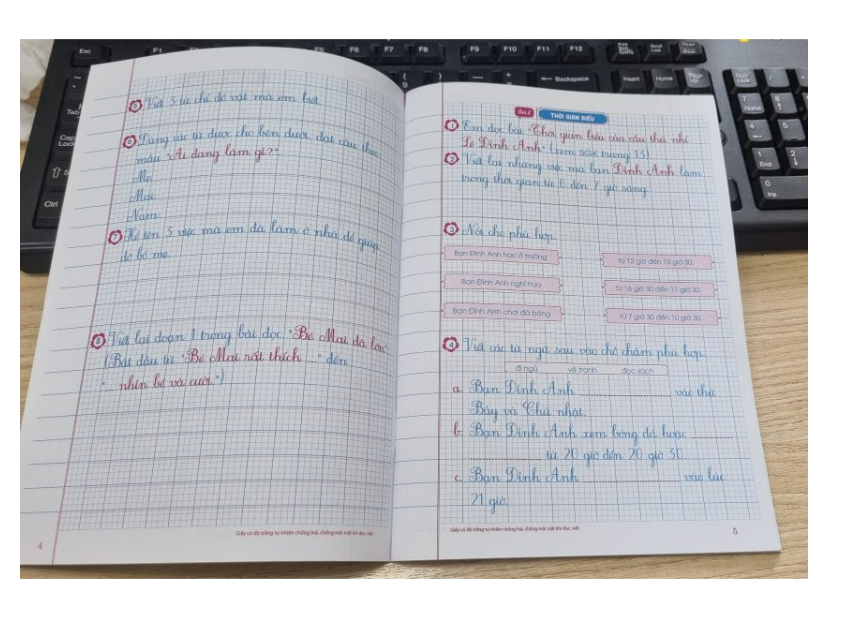 5 Viết 3 từ chỉ đồ vật mà em biết.
6 Dùng các từ được cho bên dưới đặt câu theo
mẫu "Ai đang làm gì?"
Mẹ:
Mai:
Nam:
7 Kể tên 3 việc mà em đã làm ở nhà để giúp
đỡ bố mẹ.
8 Viết lại đoạn 1 trong bài đọc "Bé Mai đã lớn"
(Bắt đầu từ "Bé Mai rất thích ..." đến
"... nhìn bé và cười.")
4
Giấy có độ trắng tự nhiên chống loá, chống mỏi mắt khi đọc, viết
Bài 2
THỜI GIAN BIỂU
1 Em đọc bài "Thời gian biểu của cầu thủ nhí
Lê Đình Anh" (xem SGK trang 13)
2 Viết lại những việc mà bạn Đình Anh làm
trong thời gian từ 6 đến 7 giờ sáng.
3 Nối cho phù hợp.
Bạn Đình Anh học ở trường
từ 12 giờ đến 13 giờ 30.
Bạn Đình Anh nghỉ trưa
từ 16 giờ 30 đến 17 giờ 30.
Bạn Đình Anh chơi đá bóng
từ 7 giờ 30 đến 10 giờ 30.
4 Viết các từ ngữ sau vào chỗ chấm phù hợp.
đi ngủ vẽ tranh đọc sách
a. Bạn Đình Anh ............ vào thứ
Bảy và Chủ nhật.
b. Bạn Đình Anh xem bóng đá hoặc ......
............ từ 20 giờ đến 20 giờ 30.
c. Bạn Đình Anh ............ vào lúc
21 giờ.
Giấy có độ trắng tự nhiên chống loá, chống mỏi mắt khi đọc, viết
5
Esc F1 F5 F6 F7 F8 F9 F10 F11 F12
Backspace Insert Home
Tab
Caps Lock
Ctrl
7 Home 8
4 5
1 End 2
0 Ins